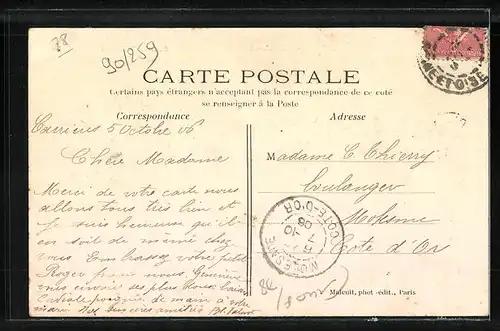 78
90/259
CARTE POSTALE
Certains pays étrangers n'acceptant pas la correspondance de ce coté
se renseigner à la Poste
Correspondance
Adresse
5 Octobre 06
Chère Madame
Merci de votre carte nous
allons tous très bien et
je suis heureuse qu'il
en soit de même chez
vous. Embrassez votre petit
Roger pour nous. Geneviève
vous envoie ses plus doux baisers
poignée de main à votre
mari
amitiés
Madame C. Thierry
boulanger
Molesme
Côte d'Or
MOLESME
COTE-D'OR
Malcuit, phot-édit., Paris